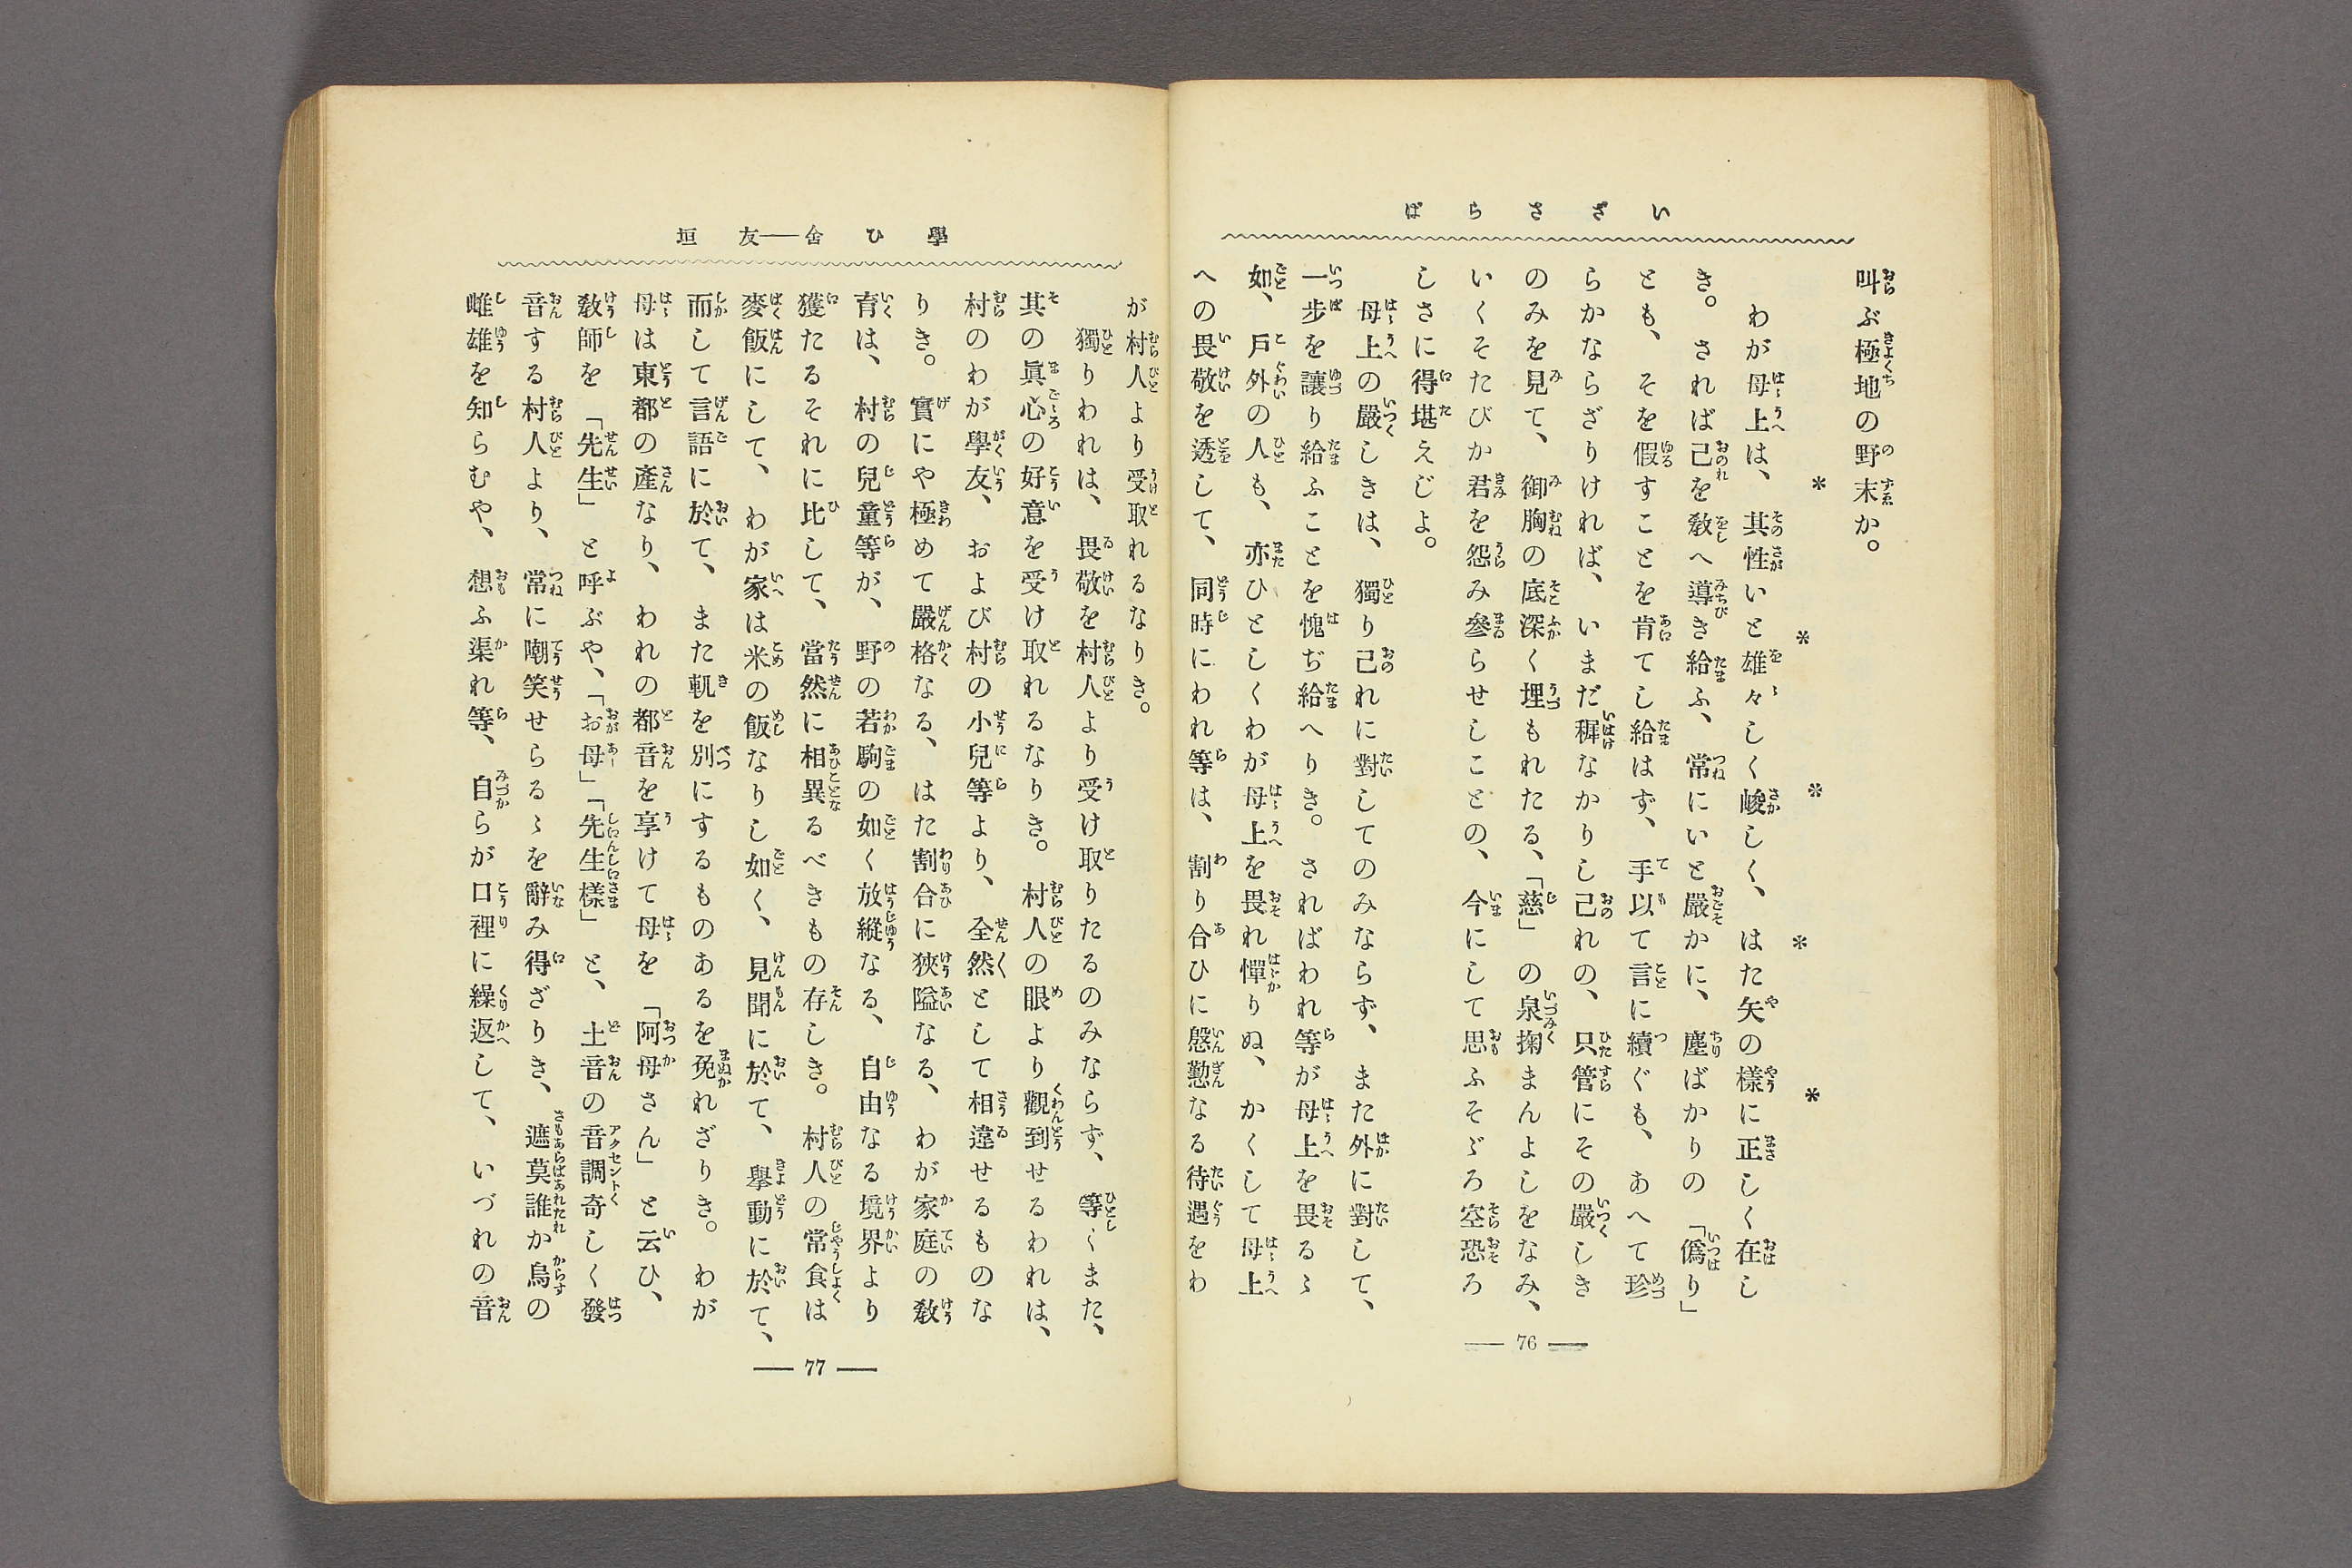 いざさらば
叫ぶ極地の野末か。
* * * * *
わが母上は、其性いと雄々しく峻しく、はた矢の樣に正しく在し
き。されば己を敎へ導き給ふ、常にいと嚴かに、塵ばかりの「僞り」
とも、そを假すことを肯てし給はず、手以て言に續ぐも、あへて珍
らかならざりければ、いまだ穉なかりし己れの、只管にその嚴しき
のみを見て、御胸の底深く埋もれたる、「慈」の泉掬まんよしをなみ、
いくそたびか君を怨み參らせしことの、今にして思ふそゞろ空恐ろ
しさに得堪えじよ。
母上の嚴しきは、獨り己れに對してのみならず、また外に對して、
一步を讓り給ふことを愧ぢ給へりき。さればわれ等が母上を畏るゝ
如、戶外の人も、亦ひとしくわが母上を畏れ憚りぬ、かくして母上
への畏敬を透して、同時にわれ等は、割り合ひに慇懃なる待遇をわ
― 76 ―
學ひ舍――友垣
が村人より受取れるなりき。
獨りわれは、畏敬を村人より受け取りたるのみならず、等しくまた、
其の眞心の好意を受け取れるなりき。村人の眼より觀到せるわれは、
村のわが學友、および村の小兒等より、全然として相違せるものな
りき。實にや極めて嚴格なる、はた割合に狹隘なる、わが家庭の敎
育は、村の兒童等が、野の若駒の如く放縱なる、自由なる境界より
獲たるそれに比して、當然に相異るべきもの存しき。村人の常食は
麥飯にして、わが家は米の飯なりし如く、見聞に於て、擧動に於て、
而して言語に於て、また軌を別にするものあるを免れざりき。わが
母は東都の產なり、われの都音を享けて母を「阿母さん」と云ひ、
敎師を「先生」と呼ぶや、「お母」「先生樣」と、土音の音調奇しく發
音する村人より、常に嘲笑せらるゝを辭み得ざりき、遮莫誰か烏の
雌雄を知らむや、想ふ渠れ等、自らが口裡に繰返して、いづれの音
― 77 ―